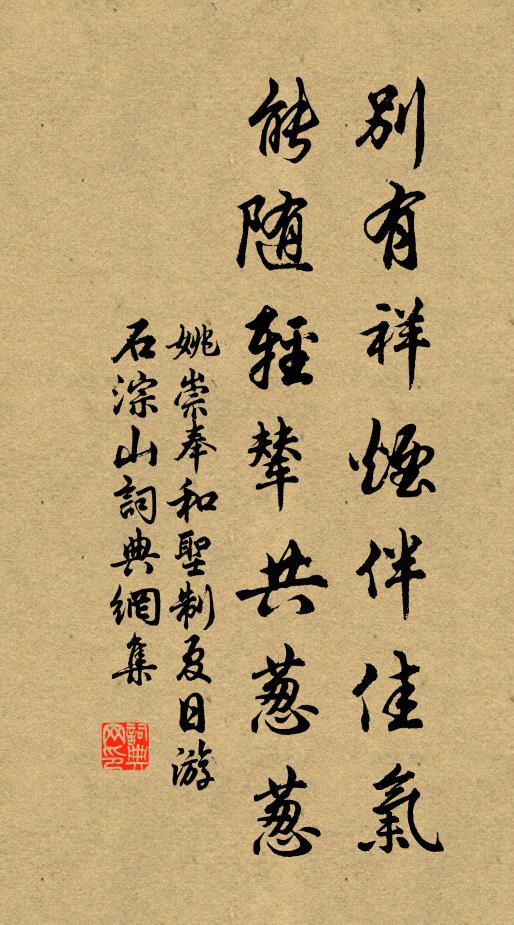 別有祥煙伴佳氣
能随輕輦共葱葱
姚崇奉和聖制夏日游
石淙山詞典網集
詞典网印